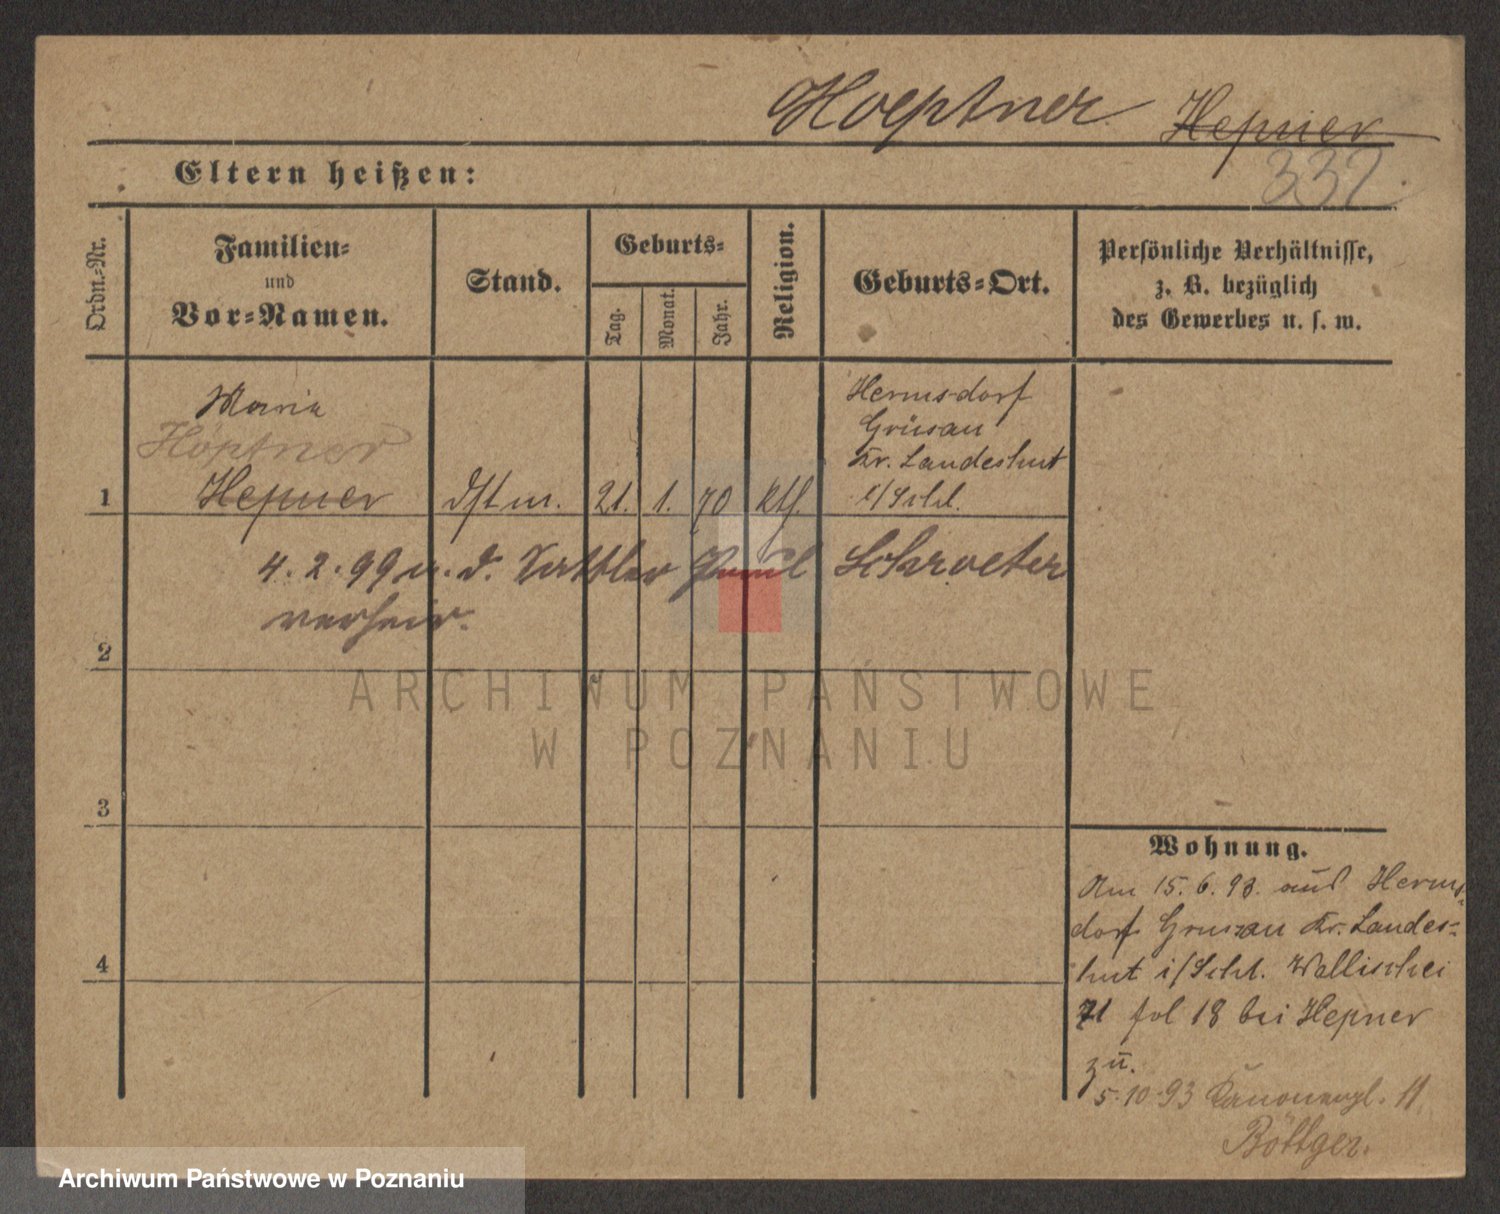 Hoeptner Hepner
332
Eltern heißen:
Ordn.-Nr.
Familien-
und
Vor-Namen.
Stand.
Geburts-
Tag.
Monat.
Jahr.
Religion.
Geburts-Ort.
Persönliche Verhältnisse,
z. B. bezüglich
des Gewerbes u. s. w.
Maria
Höptner
1 Hepner Dstm. 21. 1. 70 Kth.
Hermsdorf
Grüsau
Kr. Landeshut
i/Schl.
4. 2. 99 m. d. Sattler Paul Schroeter
verheir.
2
3
4
ARCHIWUM PAŃSTWOWE
W POZNANIU
Wohnung.
Am 15. 6. 93. aus Herms-
dorf Grusau Kr. Landes-
hut i/Schl. Wallischei
71 fol 18 bei Hepner
zu.
5.10.93 Kanonenpl. 11
Böttger.
Archiwum Państwowe w Poznaniu